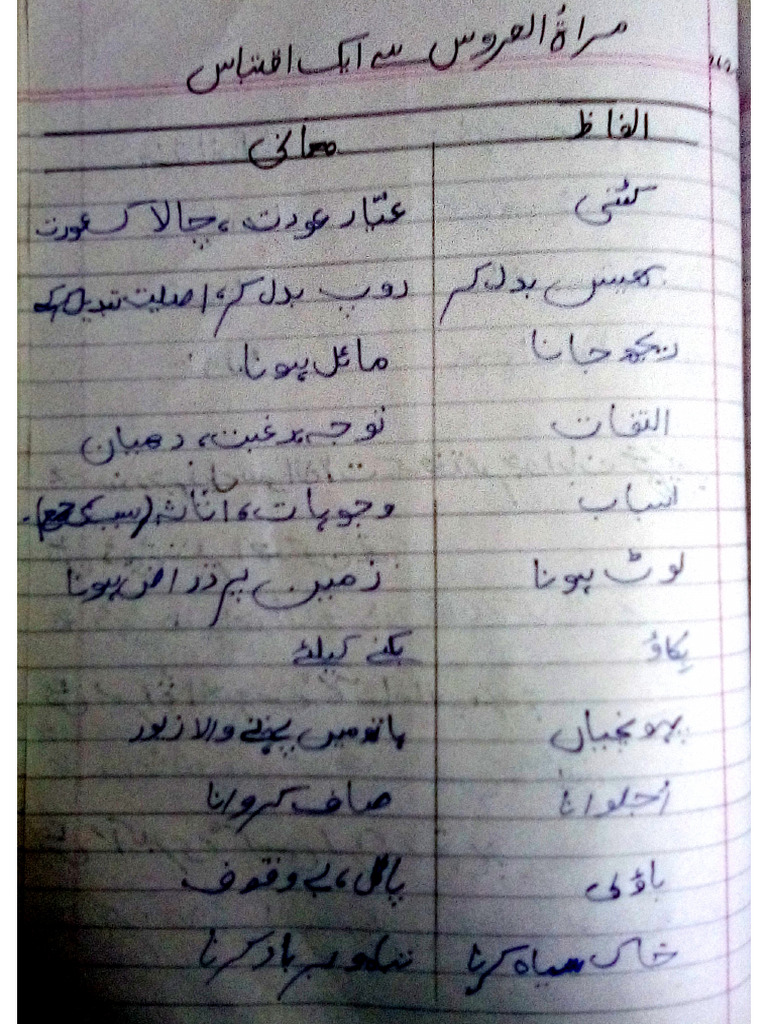 مراۃ العروس سے ایک اقتباس
الفاظ معانی
کٹنی عیّار عورت، چالاک عورت
بھیس بدل کر روپ بدل کر، اصلیت تبدیل کرکے
ریجھ جانا مائل ہونا
التفات توجہ، رغبت، دھیان
اسباب وجوہات، اثاثہ (سبب کی جمع)
لوٹ ہونا زمین پر دراض ہونا
بکاؤ بکنے کیلئے
پہونچیاں ہاتھ میں پہننے والا زیور
اُجلوانا صاف کروانا
باؤلی پاگل، بے وقوف
خاک سیاہ کرنا تباہ و برباد کرنا